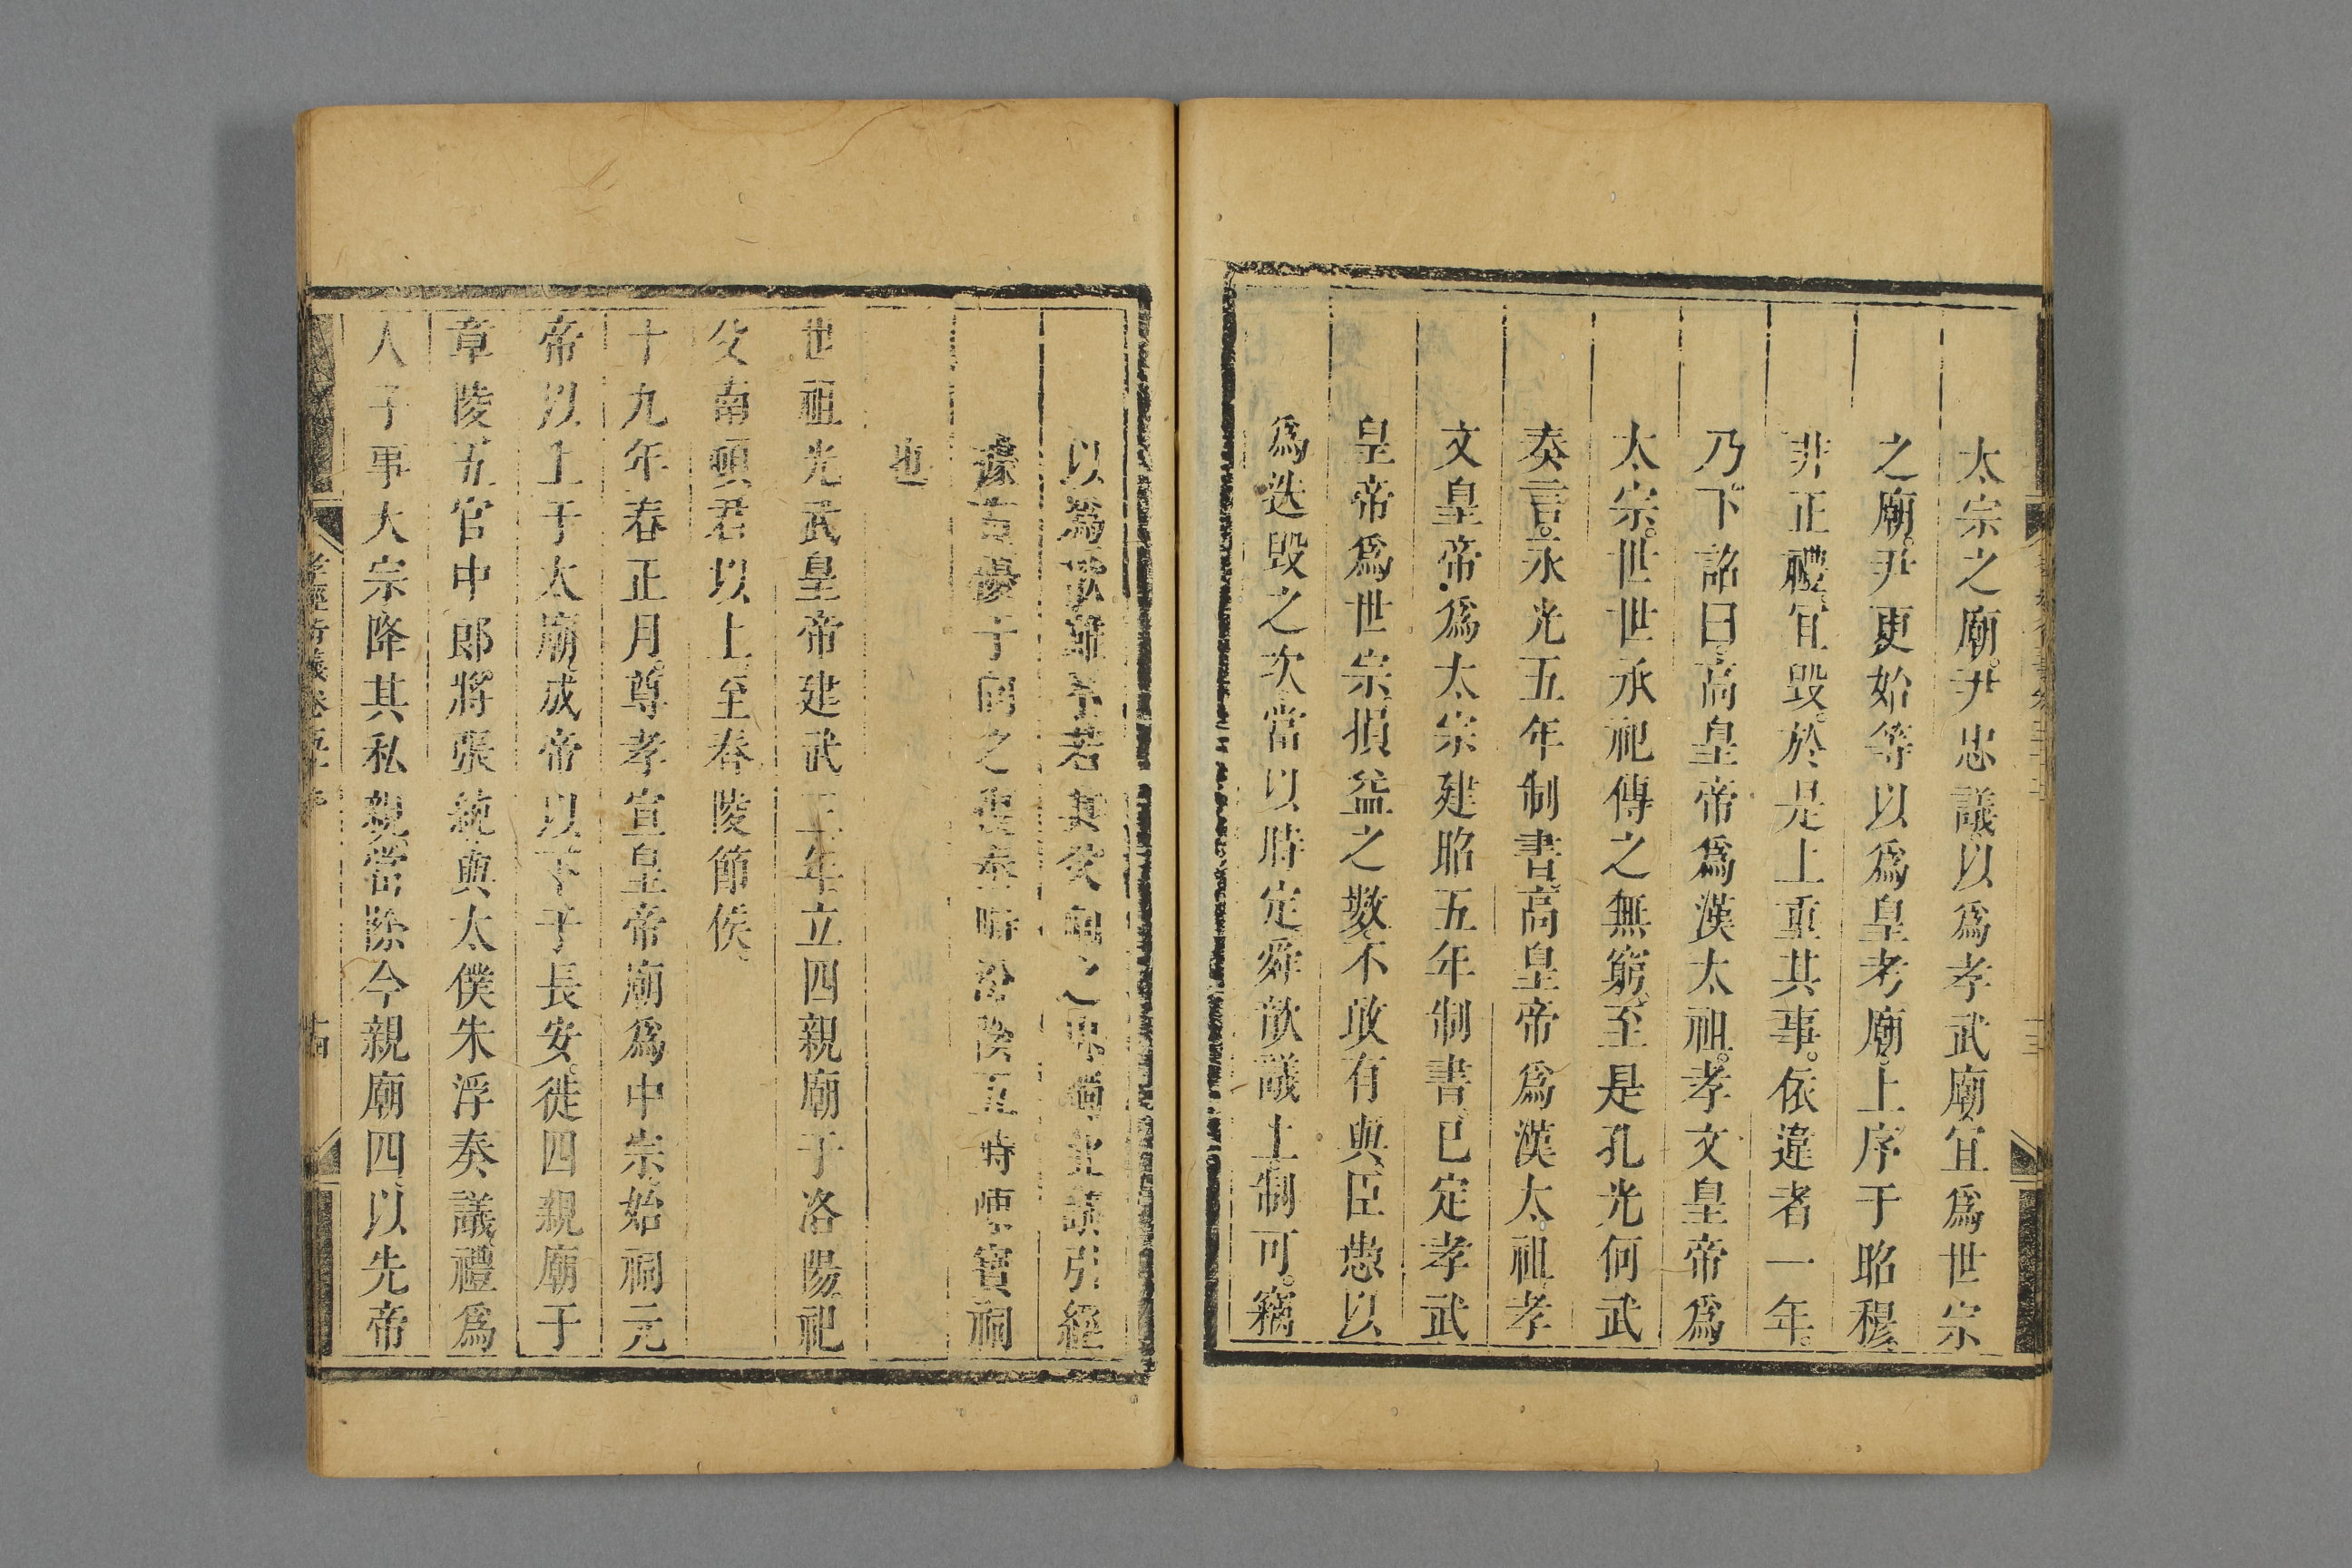 太宗之廟。尹忠議以爲孝武廟宜爲世宗
之廟。尹更始等以爲皇考廟。上序于昭穆
非正禮。宜毀。於是上重其事。依違者一年。
乃下詔曰。高皇帝爲漢太祖。孝文皇帝爲
太宗。世世承祀傳之無窮至是孔光何武
奏言。永光五年制書。高皇帝爲漢太祖孝
文皇帝爲太宗建昭五年制書。已定孝武
皇帝爲世宗損益之數不敢有與臣愚以
爲迭毀之次當以時定舜歆議上。制可。竊
以爲歆雖不若其父向之忠
引經
據古優于向之
五畤陳寶祠
也
世祖光武皇帝建武三年立四親廟于洛陽祀
父南頓君以上至舂陵節侯。
十九年春正月。尊孝宣皇帝廟爲中宗。始祠元
帝以上于太廟。成帝以下于長安。徙四親廟于
章陵五官中郎將張純與太僕朱浮奏議禮爲
人子事大宗降其私親當除今親廟四以先帝
孝經衍義卷